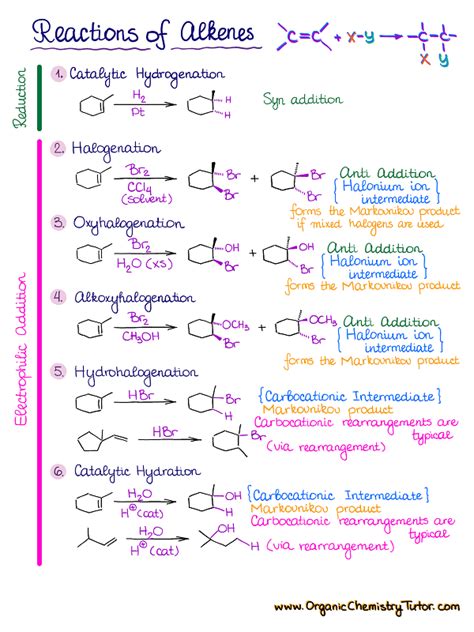 Reactions of Alkenes
C=C + X-Y → C-C
X Y
Reduction
1. Catalytic Hydrogenation
H2
Pt
H
H
Syn addition
Electrophilic Addition
2. Halogenation
Br2
CCl4
(solvent)
Br
Br
+
Br
Br
Anti Addition
{Halonium ion
intermediate}
forms the Markovnikov product
if mixed halogens are used
3. Oxyhalogenation
Br2
H2O (xs)
OH
Br
+
OH
Br
Anti Addition
{Halonium ion
intermediate}
forms the Markovnikov product
4. Alkoxyhalogenation
Br2
CH3OH
OCH3
Br
+
OCH3
Br
Anti Addition
{Halonium ion
intermediate}
forms the Markovnikov product
5. Hydrohalogenation
HBr
Br
H
{Carbocationic Intermediate}
Markovnikov product
Carbocationic rearrangements are
typical
HBr
Br
H
(via rearrangement)
6. Catalytic Hydration
H2O
H⊕(cat)
OH
H
{Carbocationic Intermediate}
Markovnikov product
Carbocationic rearrangements are
typical
H2O
H⊕(cat)
HO
H
(via rearrangement)
www.OrganicChemistryTutor.com